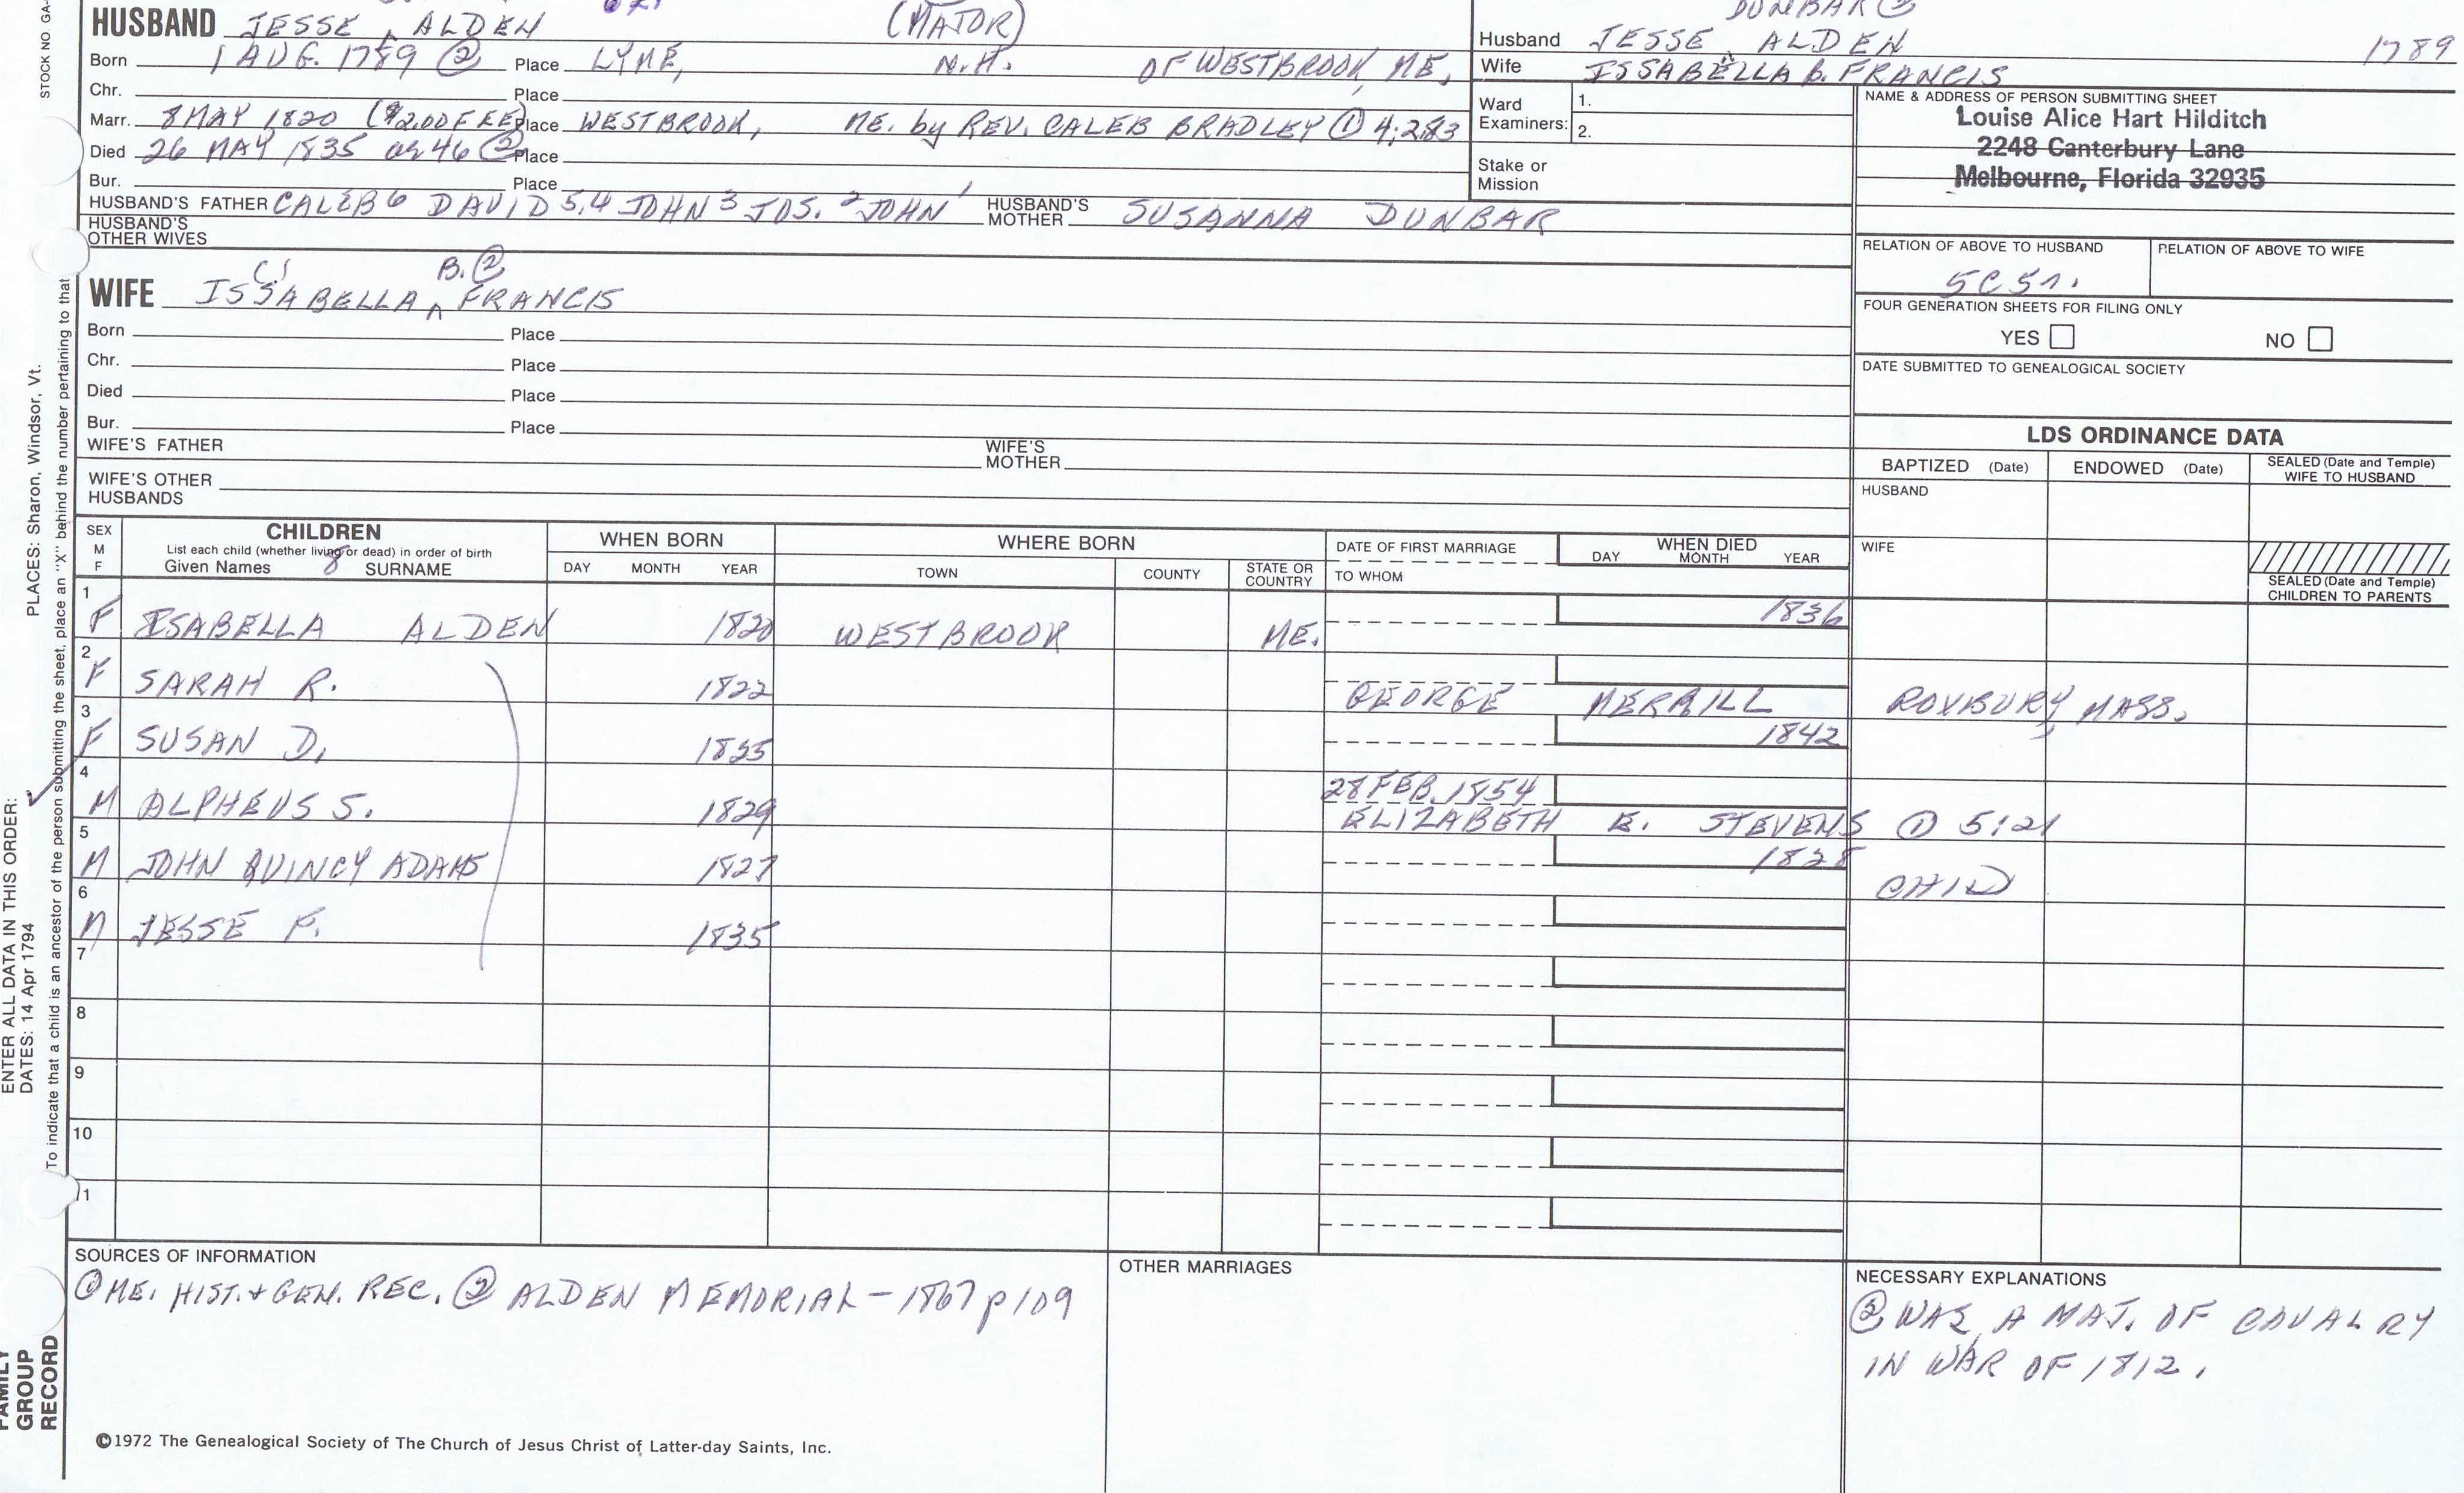 STOCK NO. GA-
DUNBAR ②
HUSBAND JESSE ^ ALDEN (MAJOR)
Husband JESSE ^ ALDEN 1789
Born 1 AUG. 1789 ② Place LYME, N.H. OF WESTBROOK, ME.
Wife ISSABELLA B. FRANCIS
Chr. Place
Ward Examiners: 1. 2.
NAME & ADDRESS OF PERSON SUBMITTING SHEET
Louise Alice Hart Hilditch
2248 Canterbury Lane
Melbourne, Florida 32935
Marr. 8 MAY 1820 ($2.00 FEE) Place WESTBROOK, ME. by REV. CALEB BRADLEY ① 4:283
Died 26 MAY 1835 ae 46 ② Place
Stake or Mission
Bur. Place
HUSBAND'S FATHER CALEB 6 DAVID 5,4 JOHN 3 JOS. 2 JOHN 1 HUSBAND'S MOTHER SUSANNA DUNBAR
HUSBAND'S OTHER WIVES
RELATION OF ABOVE TO HUSBAND RELATION OF ABOVE TO WIFE
5C5r.
B. ②
WIFE ISSABELLA ^ FRANCIS
FOUR GENERATION SHEETS FOR FILING ONLY
YES NO
Born Place
Chr. Place
DATE SUBMITTED TO GENEALOGICAL SOCIETY
Died Place
Bur. Place
WIFE'S FATHER WIFE'S MOTHER
WIFE'S OTHER HUSBANDS
LDS ORDINANCE DATA
BAPTIZED (Date) ENDOWED (Date) SEALED (Date and Temple) WIFE TO HUSBAND
HUSBAND
WIFE
SEALED (Date and Temple) CHILDREN TO PARENTS
SEX M F
CHILDREN
List each child (whether living or dead) in order of birth
Given Names 8 SURNAME
WHEN BORN
DAY MONTH YEAR
WHERE BORN
TOWN COUNTY STATE OR COUNTRY
DATE OF FIRST MARRIAGE
TO WHOM
WHEN DIED
DAY MONTH YEAR
1 F ISABELLA ALDEN 1820 WESTBROOK ME. 1836
2 F SARAH R. 1822 GEORGE MERRILL ROXBURY, MASS.
3 F SUSAN D. 1825 1842
4 M ALPHEUS S. 1829 28 FEB. 1854
ELIZABETH E. STEVENS ① 5:21
5 M JOHN QUINCY ADAMS 1827 1828 CHILD
6 M JESSE F. 1835
7
8
9
10
11
SOURCES OF INFORMATION
① ME. HIST. + GEN. REC. ② ALDEN MEMORIAL - 1867 p 109
OTHER MARRIAGES
NECESSARY EXPLANATIONS
② WAS A MAJ. OF CAVALRY
IN WAR OF 1812.
©1972 The Genealogical Society of The Church of Jesus Christ of Latter-day Saints, Inc.
PLACES: Sharon, Windsor, Vt.
ENTER ALL DATA IN THIS ORDER:
DATES: 14 Apr 1794
To indicate that a child is an ancestor of the person submitting the sheet, place an "X" behind the number pertaining to that
FAMILY GROUP RECORD